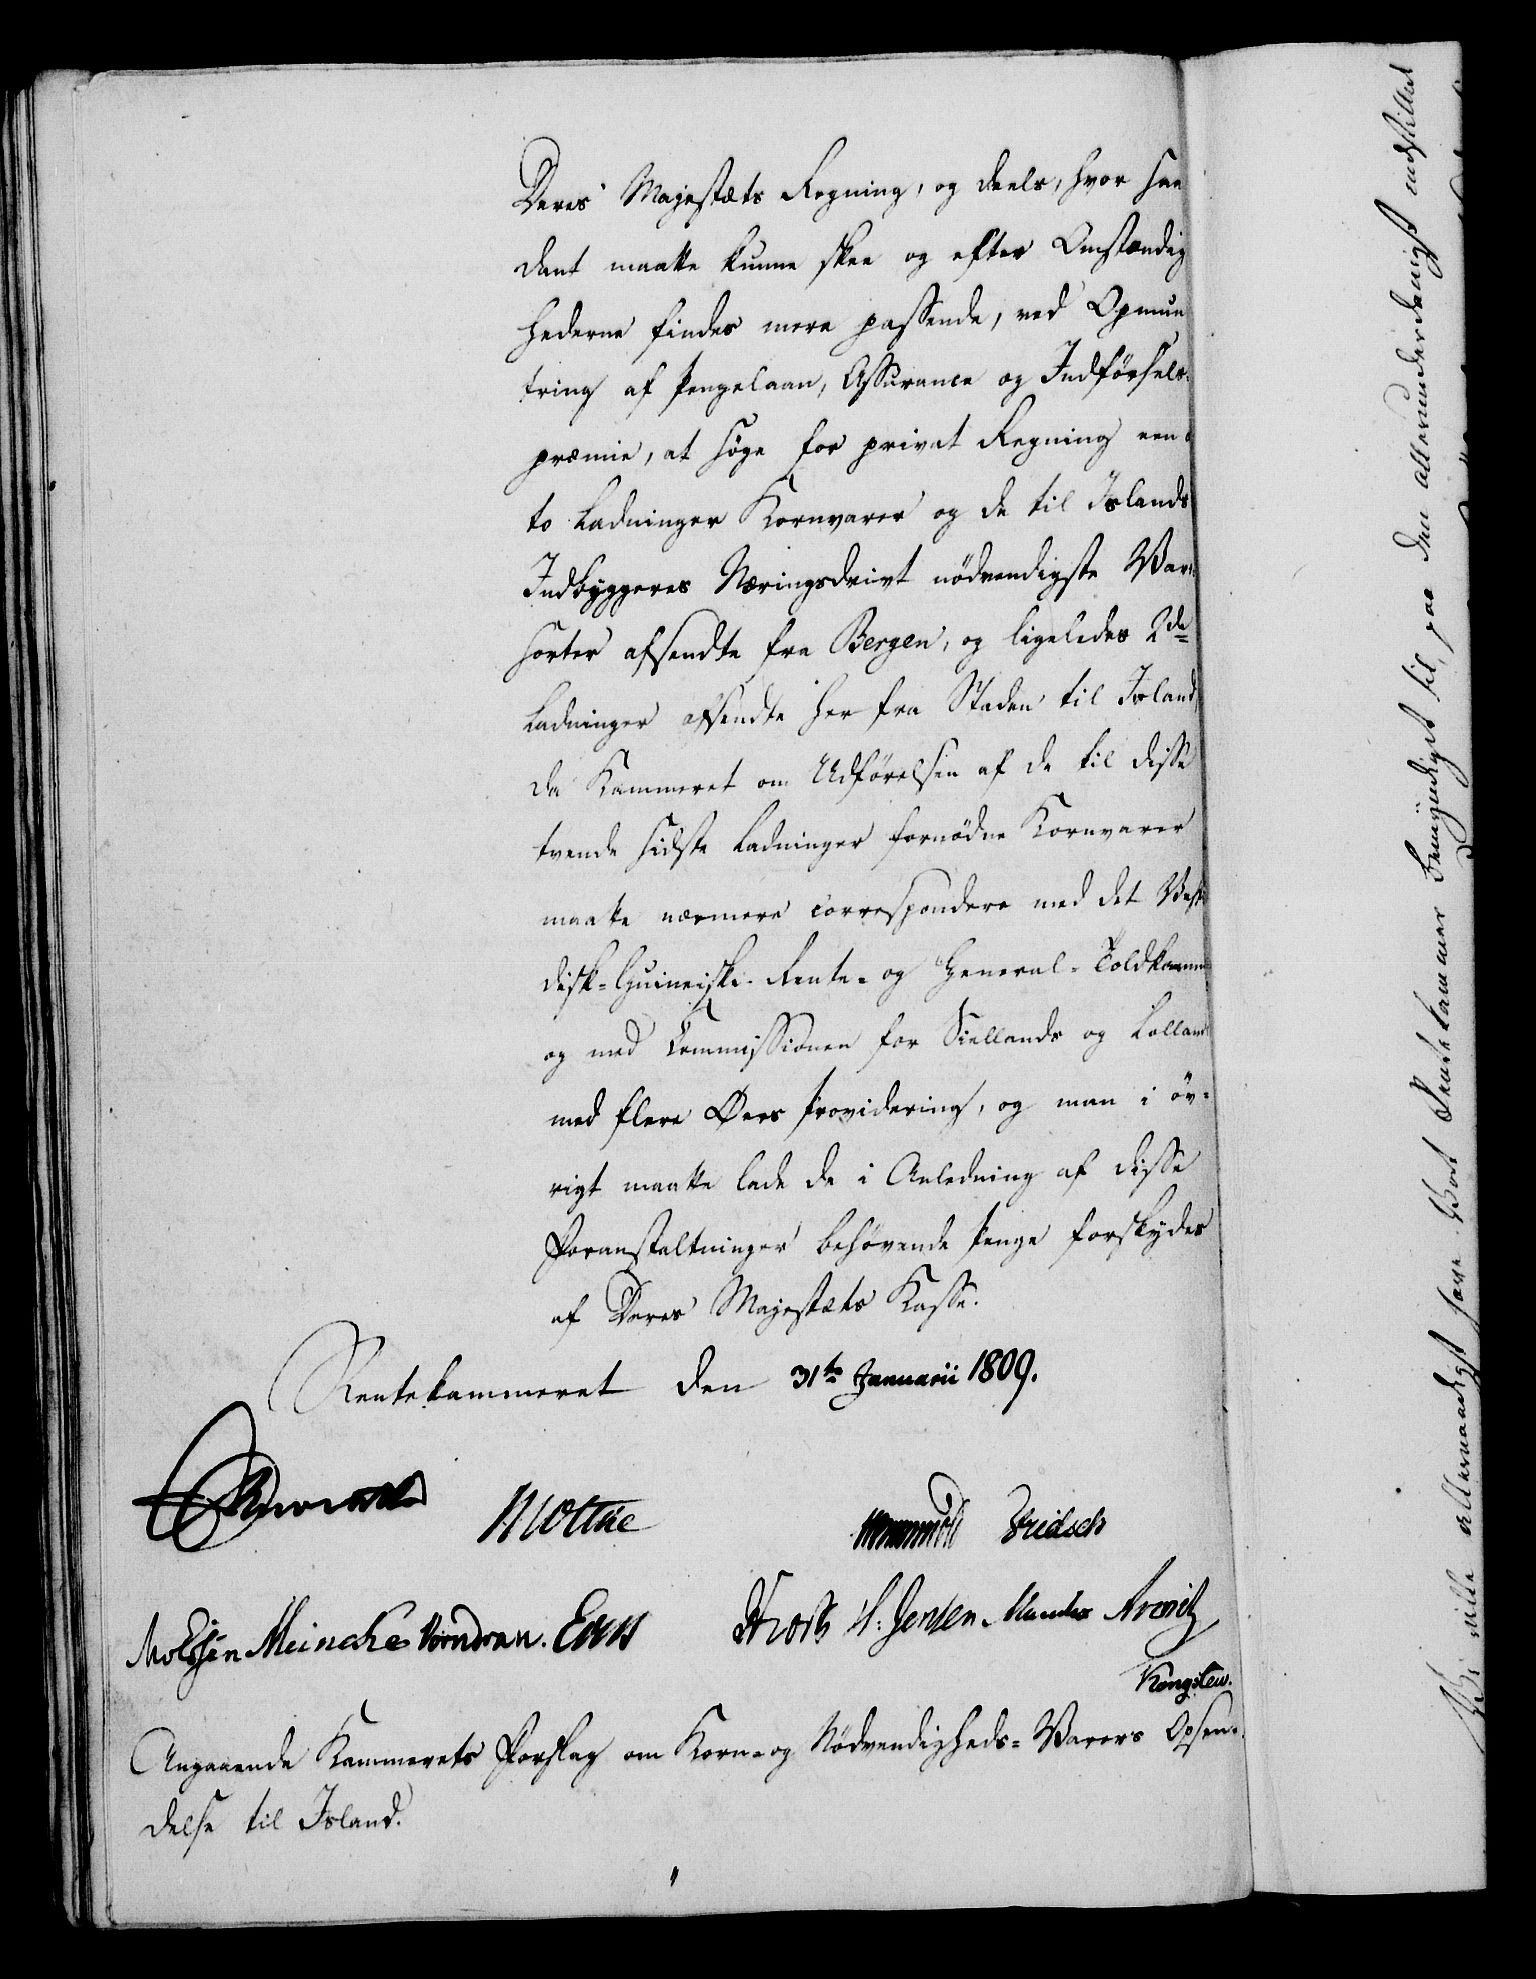 Deres Majestæts Regning, og deels, hvor saa
dant maatte kunne skee og efter Omstændig
hederne findes mere passende, ved Opmun
tring af Pengelaan, Assurance og Indførsels
præmie, at søge for privat Regning een à
to Ladninger Kornvarer og de til Islands
Indbyggeres Næringsdrivt nødvendigste Vare
sorter afsendte fra Bergen, og ligeledes 2de
Ladninger afsendte her fra Staden til Island
da Kammeret om Udførelsen af de til disse
tvende sidste Ladninger fornødne Kornvarer
maatte nærmere correspondere med det Vest
disk-Guineiske Rente- og General-Toldkamm
og med Commissionen for Siellands og Lolland
med flere Øers Providering, og man i øv-
rigt maatte lade de i Anledning af disse
Foranstaltninger behøvende Penge forskydes
af Deres Majestæts Kasse.
Rentekammeret den 31te Januarii 1809.
Wormskiold Fridsch
Meincke Vorndran.
H. Jensen
Kongslew.
Angaaende Kammerets Forslag om Korn- og Nødvendigheds-Varers Opsen-
delse til Island.
Vi ville allernaadigst have Vort Rentekammer bemyndiget til, paa den allerunderdanigst indstillet